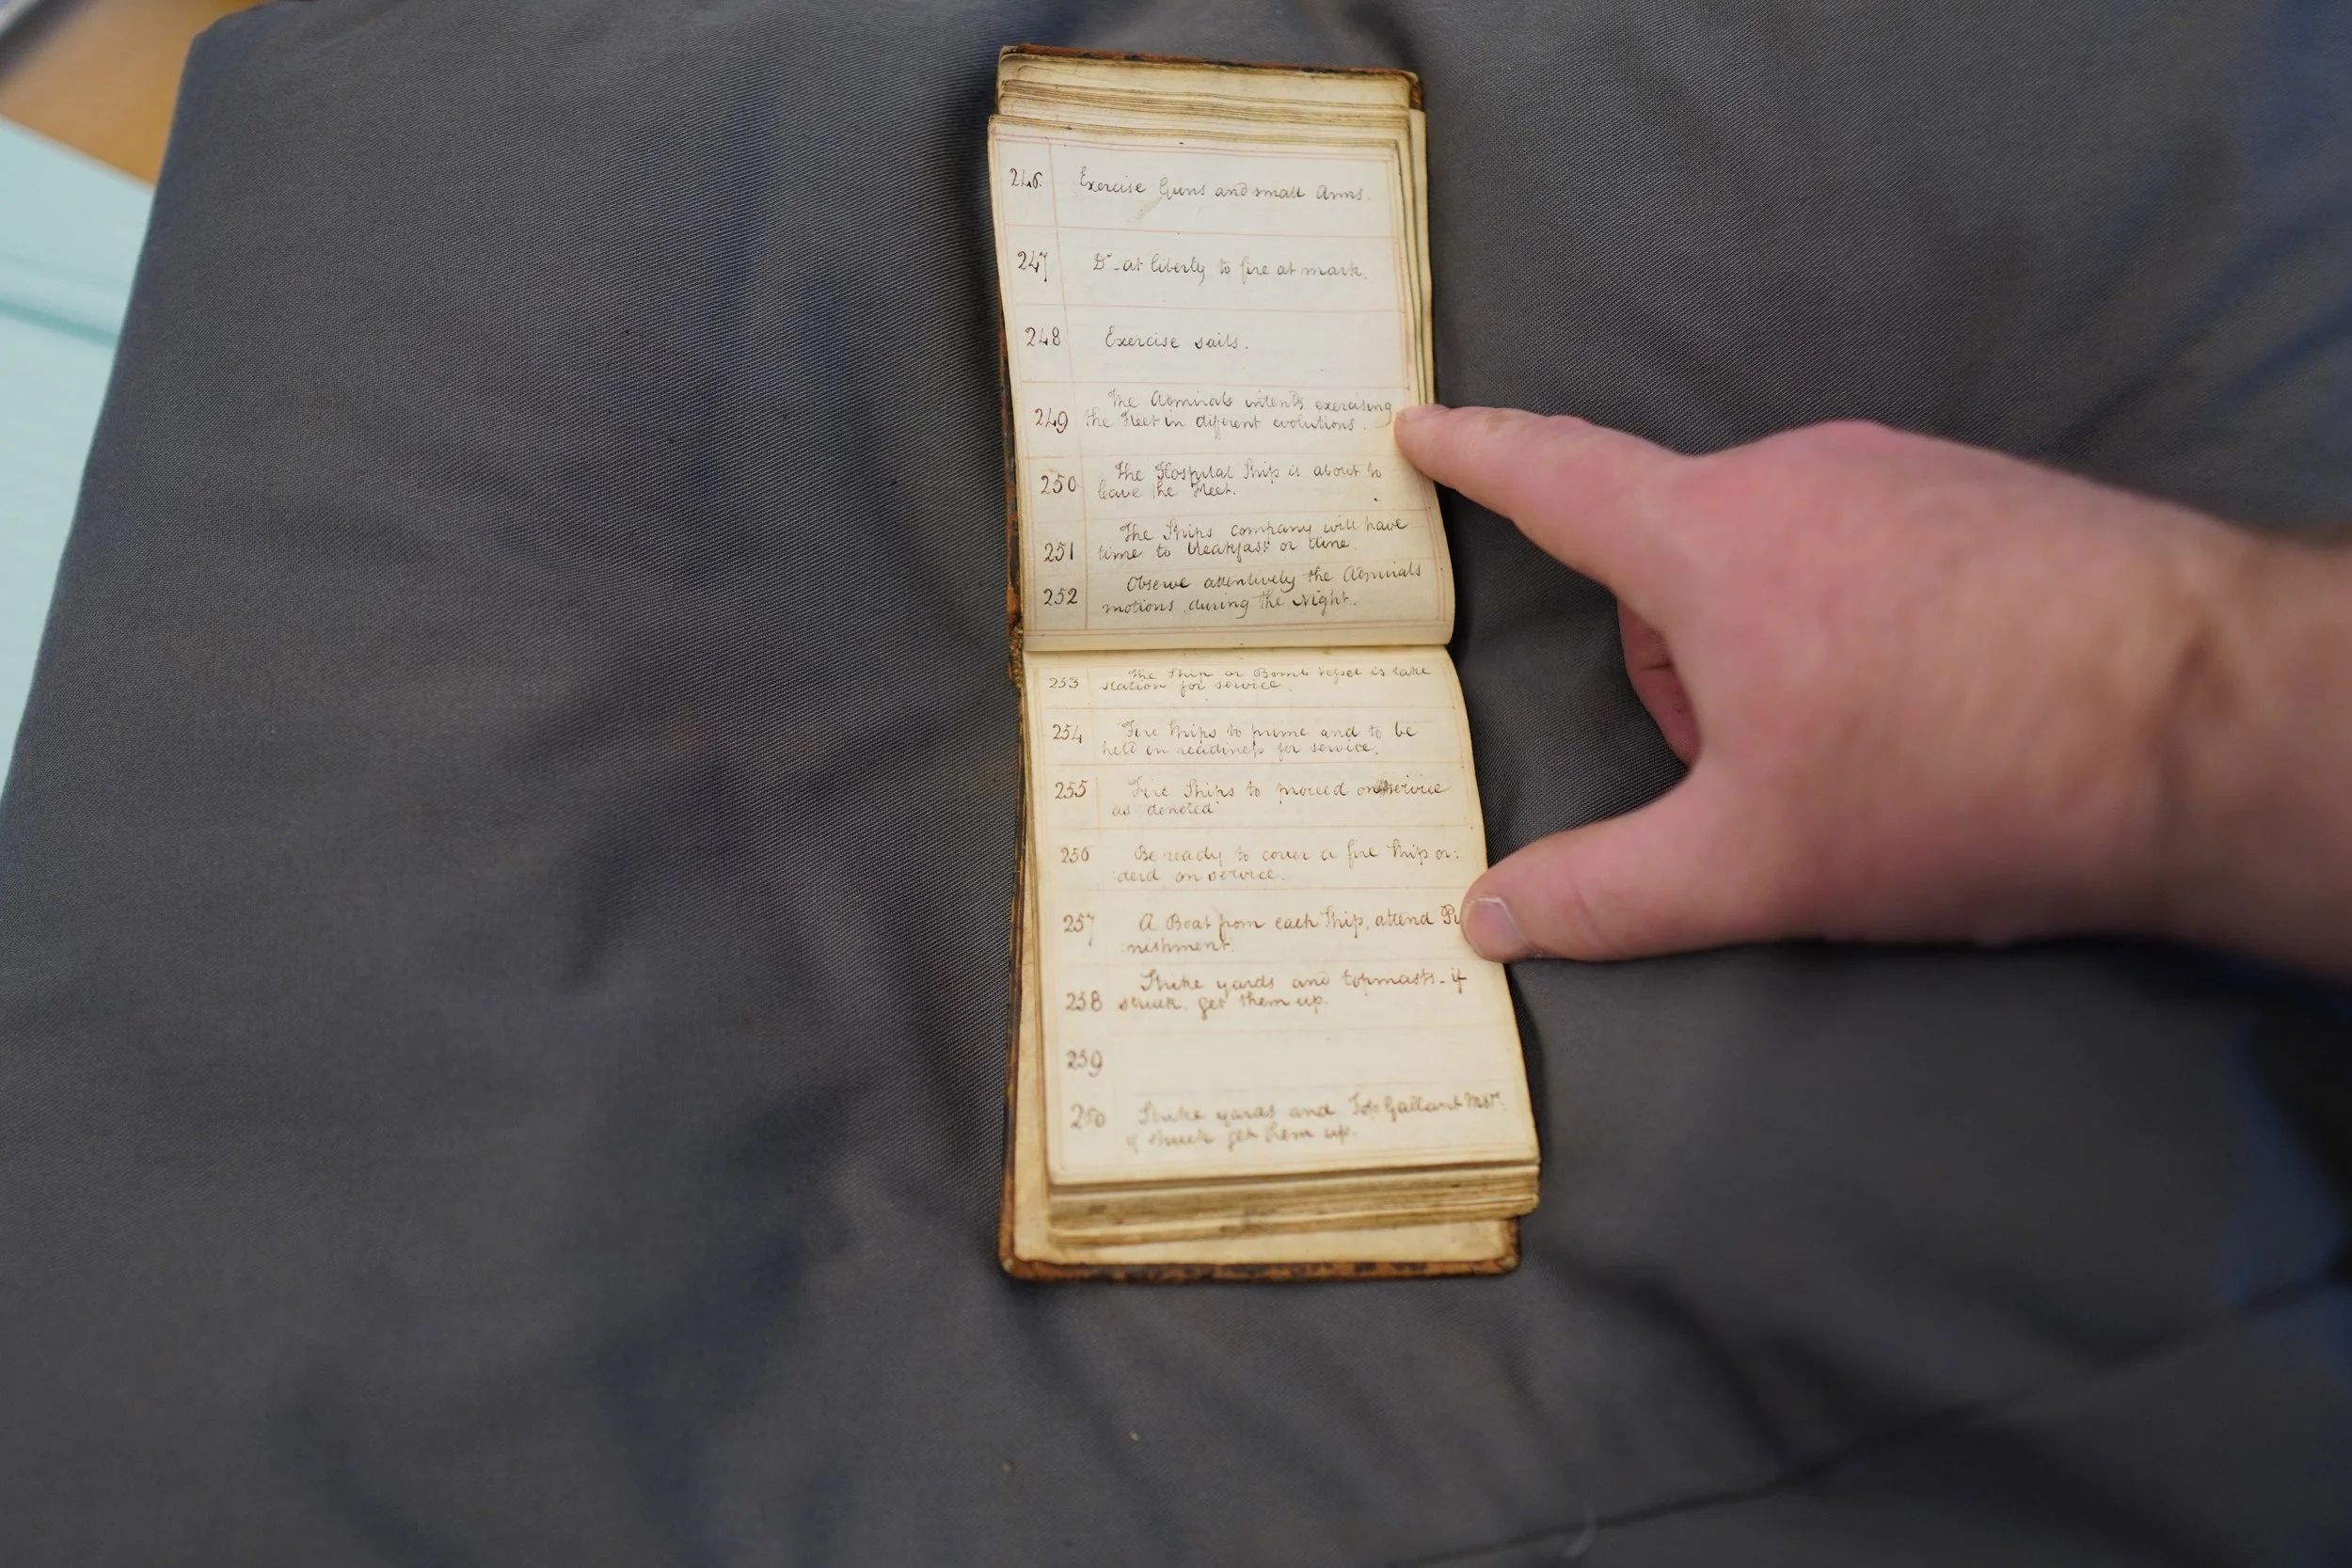 246. Exercise Guns and small Arms.
247 Do at liberty to fire at mark.
248 Exercise sails.
The Admirals intents exercising
249 the Fleet in different evolutions.
250 The Hospital Ship is about to
leave the Fleet.
The Ships company will have
251 time to breakfast or dine.
Observe attentively the Admirals
252 motions during the Night.
253 The Ship or Bomb vessel is take
station for service.
254 Fire Ships to prime and to be
held in readiness for service.
255 Fire Ships to proceed on service
as denoted
256 Be ready to cover a fire Ship or:
derd on service.
257 A Boat from each Ship, attend Pu
nishment.
Strike yards and topmasts - if
258 struck, get them up.
259
260 Strike yards and Top Gallant Mst.
if struck get them up.